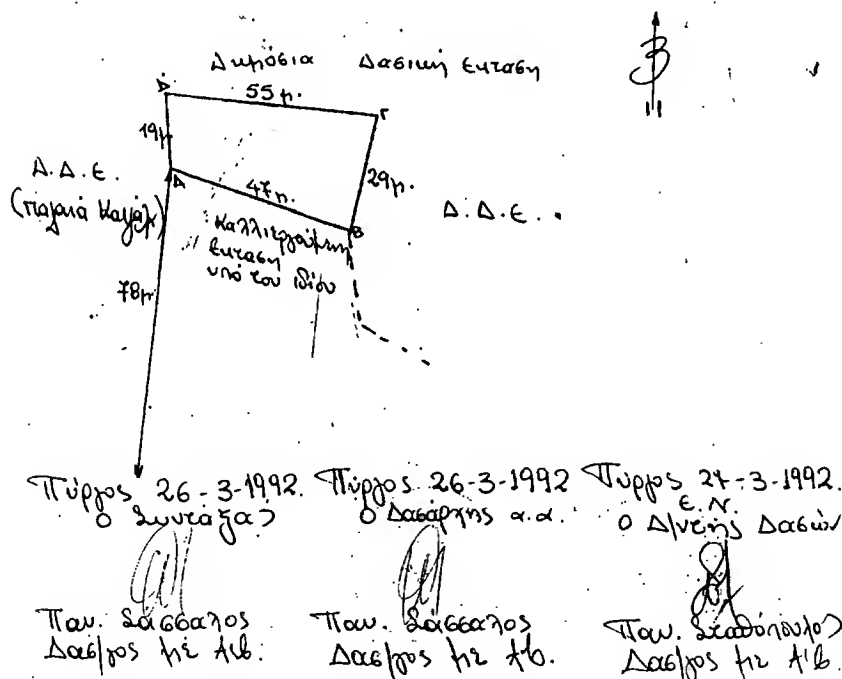 Δημόσια Δασική έκταση
Β
Δ
55 μ.
Γ
19μ
Δ.Δ.Ε.
(παλαιά
Α
47μ.
29μ.
Β
Δ.Δ.Ε.
Καλλιεργούμενη
έκταση
υπό του ιδίου
78μ
Πύργος 26-3-1992.
Ο Συντάξας
Παν. Σάσσαλος
Δασ/γος με Α'β.
Πύργος 26-3-1992
Ο Δασάρχης α.α.
Παν. Σάσσαλος
Δασ/γος με Α'β.
Πύργος 27-3-1992.
Ε.Ν.
Ο Δ/ντής Δασών
Παν. Σταθόπουλος
Δασ/γος με Α'β